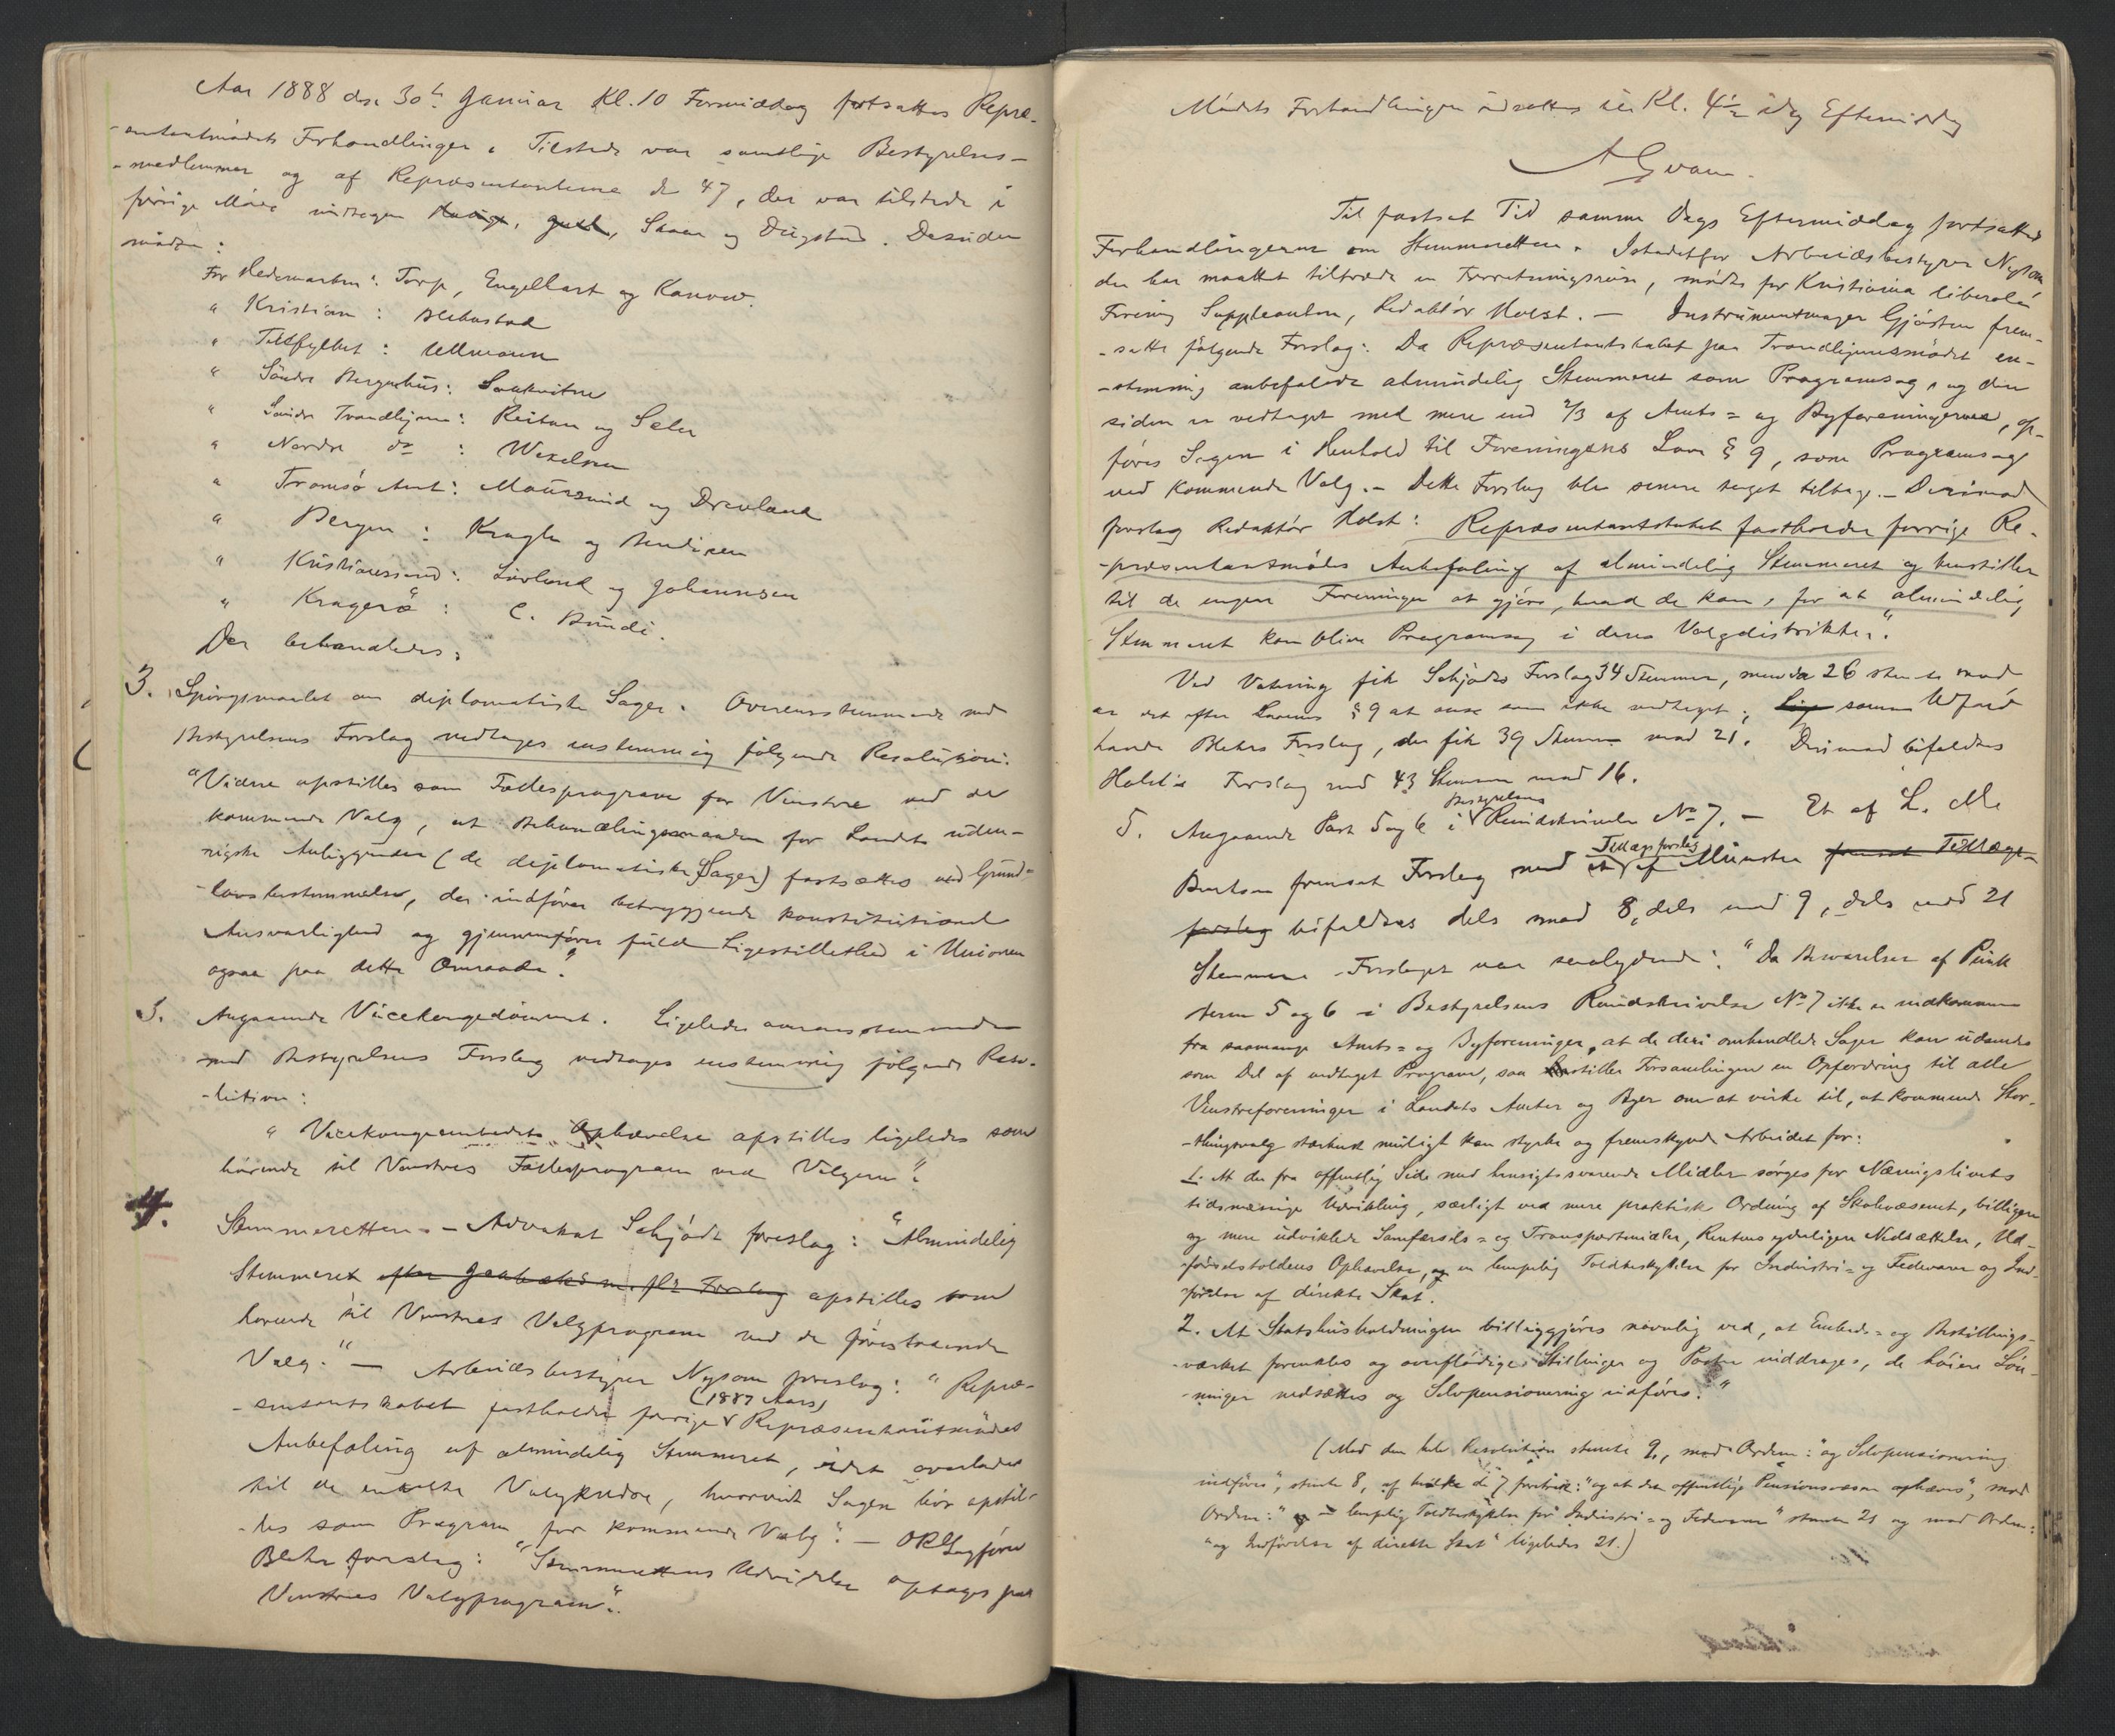 Aar 1888 den 30te Januar Kl. 10 Formiddag fortsattes Repræ-
-sentantmødets Forhandlinger. Tilstede var samtlige Bestyrelses-
-medlemmer og af Repræsentanterne de 47, der var tilstede i
forrige Møde undtagen Skaar og Dugstad. Desuden
mødte:
For Hedemarken: Torp, Engelhart og Kanow.
" Kristian: Blekastad
" Ullmann
" Søndre Bergenhus:
" Søndre Trondhjem: Reitan og Sæler
" Nordre do: Wexelsen
" Tromsø Amt: Moursund og Drevland
" Bergen: Krogh og Bendixen
" Kristianssund: Løvlund og Johannesen
" Kragerø: C. Bundi.
Der behandledes:
3. Spørgsmaalet om diplomatiske Sager. Overensstemmende med
Bestyrelsens Forslag vedtages enstemmig følgende Resolution:
"Videre opstilles som Fællesprogram for Venstre ved de
kommende Valg, at Behandlingsmaaden for Landets uden-
rigske Anliggender (de diplomatiske Sager) fastsættes ved Grund=
-lovsbestemmelse, der indfører betryggende konstitutionel
Ansvarlighed og gjennemfører fuld Ligestillethed i Unionen
ogsaa paa dette Omraade."
3. Angaaende Vicekongedømmet. Ligeledes overensstemmende
med Bestyrelsens Forslag vedtages enstemmig følgende Reso-
-lution:
" Vicekongeembedets Ophævelse opstilles ligeledes som
hørende til Venstres Fællesprogram ved Valgene".
4. Stemmeretten. - Advokat Schjødt foreslog: "Almindelig
Stemmeret efter Jaabæks m. fl.s Forslag opstilles som
hørende til Venstres Valgprogram ved de forestaaende
Valg." — Arbeidsbestyrer Nysom foreslog: "Repræ-
-sentantskabet fastholder forrige (1887 Aars) Repræsentantmødes
Anbefaling af almindelig Stemmeret, idet overlades
til de enkelte Valgkredse, hvorvidt Sagen bør opstil-
-les som Program for kommende Valg". — ORSagfører
Blehr foreslog: "Stemmerettens Udvidelse optages paa
Venstres Valgprogram".
Mødets Forhandlinger udsattes til Kl. 4½ idag Eftermiddag
A Qvam.
Til fastsat Tid samme Dags Eftermiddag fortsattes
Forhandlingerne om Stemmeretten. Istedetfor Arbeidsbestyrer Nysom
der har maattet tiltræde en Forretningsreise, mødte for Kristiania liberale
Forening Suppleanten, Redaktør Holst. — Instrumentmager Gjøsten frem-
-satte følgende Forslag: Da Repræsentantskabet paa Trondhjemsmødet en-
-stemmig anbefalede almindelig Stemmeret som Programsag, og den
siden er vedtaget med mere end 2/3 af Amts= og Byforeningerne, op-
føres Sagen i Henhold til Foreningens Love § 9, som Programsag
ved kommende Valg. - Dette Forslag blev senere taget tilbage. - Derimod
foreslog Redaktør Holst: Repræsentantskabet fastholder forrige Re-
-præsentantmødes Anbefaling af almindelig Stemmeret og henstiller
til de engere Foreninger at gjøre, hvad de kan, for at "almindelig
Stemmeret kan blive Programsag i deres Valgdistrikter".
Ved Votering fik Schjødts Forslag 34 Stemmer, men da 26 stemte mod
er det efter Lovens § 9 at anse som ikke vedtaget;
Blehrs Forslag, der fik 39 Stemmer mod 21. Derimod bifaldtes
Holsts Forslag med 43 Stemmer mod 16.
5. Angaaende Post 5 og 6 i Bestyrelsens Rundskrivelse No 7. — Et af L. M.
Bentsen fremsat Forslag med et Tillægsforslag af Münster fremsat Tillægs-
forslag bifaldtes dels mod 8, dels mod 9, dels mod 21
Stemmer. Forslaget var saalydende: "Da Besvarelser af Punk
terne 5 og 6 i Bestyrelsens Rundskrivelse No 7 ikke er indkommen
fra saamange Amts= og Byforeninger, at de deri omhandlede Sager kan udsendes
som Del af vedtaget Program, saa stiller Forsamlingen en Opfordring til alle
Venstreforeninger i Landets Amter og Byer om at virke til, at kommende Stor-
-thingsvalg stærkest muligt kan styrke og fremskynde Arbeidet for:
1. At der fra offentlig Side med hensigtssvarende Midler sørges for Næringslivets
tidsmæssige Udvikling, særligt ved mere praktisk Ordning af Skolevæsenet, billigere
og mere udviklede Samfærdsels= og Transportmidler, Rentens yderligere Nedsættelse, Ud-
førselstoldens Ophævelse, og en lempelig Toldbeskyttelse for Industri= og Fedevarer og Ind-
førelse af direkte Skat.
2. At Statshusholdningen billiggjøres navnlig ved, at Embeds= og Bestillings-
-værket forenkles og overflødige Stillinger og Poster inddrages, de høiere Løn-
-ninger nedsættes og Selvpensionering indføres."
(Mod den hele Resolution stemte 9, mod Ordene: "og Selvpensionering
indføres", stemte 8, af hvilke de 7 foretrak: "og at det offentlige Pensionsvæsen ophæves", mod
Ordene: "og en lempelig Toldbeskyttelse for Industri= og Fedevarer" stemte 21 og mod Ordene:
"og Indførelse af direkte Skat" ligeledes 21.)